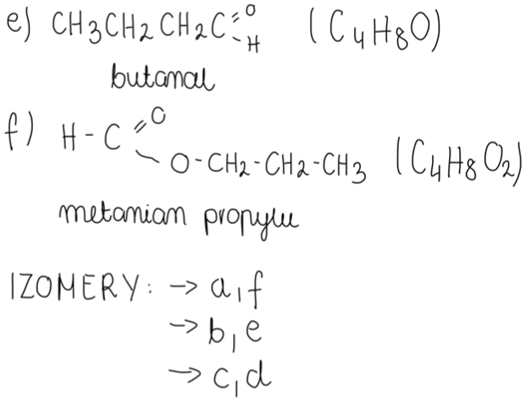 e) CH3CH2CH2C=O-H (C4H8O)
butanal
f) H-C=O-O-CH2-CH2-CH3 (C4H8O2)
metanian propylu
IZOMERY: → a, f
→ b, e
→ c, d